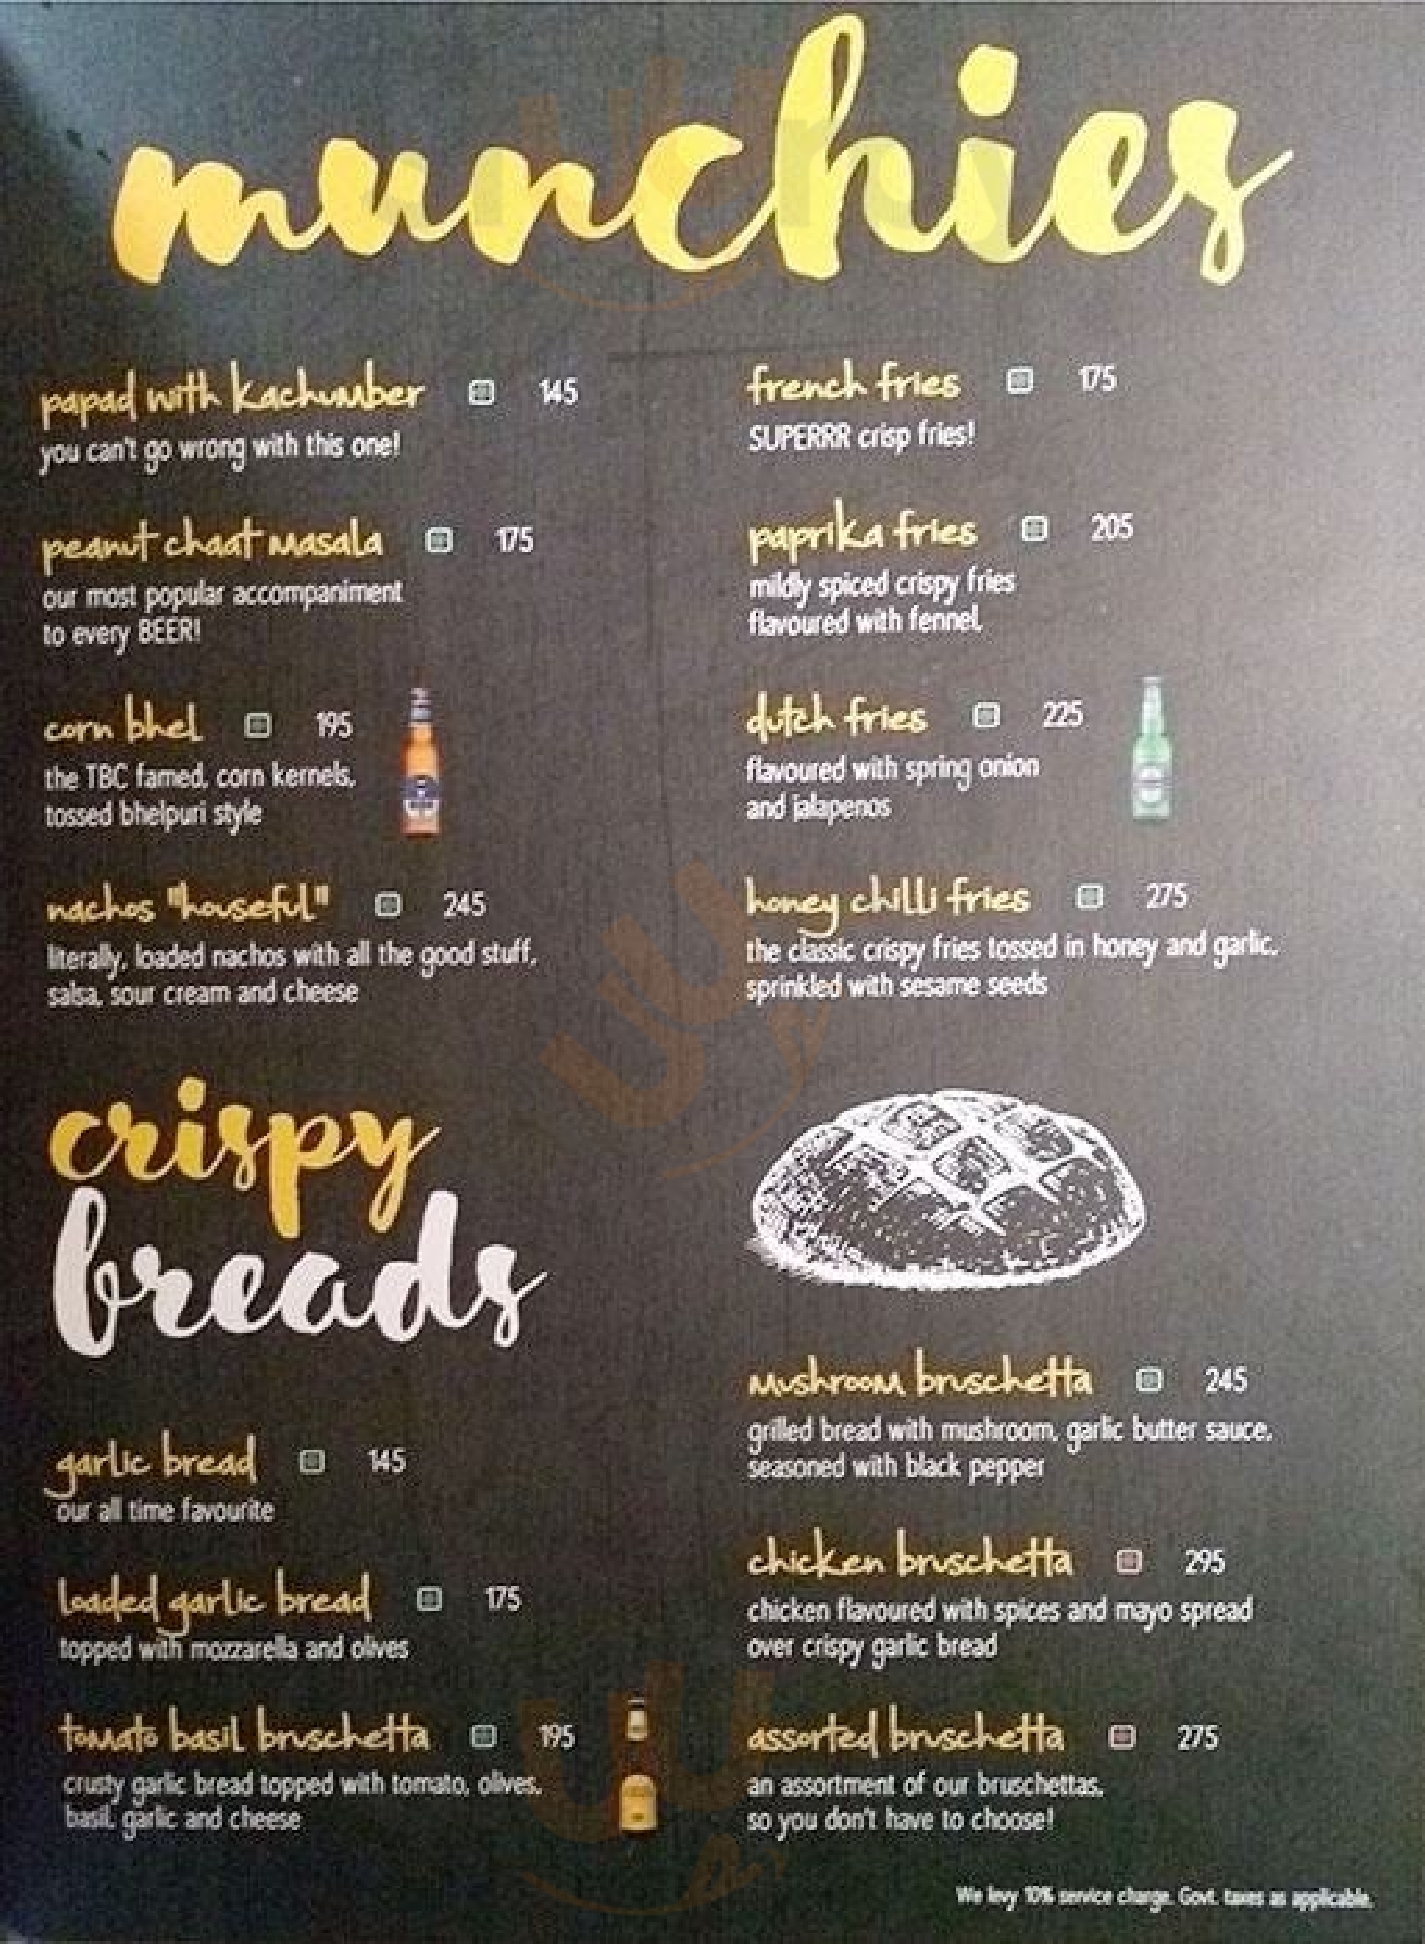 munchies
papad with kachumber 145
you can't go wrong with this one!
peanut chaat masala 175
our most popular accompaniment
to every BEER!
corn bhel 195
the TBC famed, corn kernels,
tossed bhelpuri style
nachos "houseful" 245
literally, loaded nachos with all the good stuff,
salsa, sour cream and cheese
french fries 175
SUPERRR crisp fries!
paprika fries 205
mildly spiced crispy fries
flavoured with fennel
dutch fries 225
flavoured with spring onion
and jalapenos
honey chilli fries 275
the classic crispy fries tossed in honey and garlic,
sprinkled with sesame seeds
crispy
breads
garlic bread 145
our all time favourite
loaded garlic bread 175
topped with mozzarella and olives
tomato basil bruschetta 195
crusty garlic bread topped with tomato, olives,
basil, garlic and cheese
mushroom bruschetta 245
grilled bread with mushroom, garlic butter sauce,
seasoned with black pepper
chicken bruschetta 295
chicken flavoured with spices and mayo spread
over crispy garlic bread
assorted bruschetta 275
an assortment of our bruschettas,
so you don't have to choose!
We levy 10% service charge. Govt. taxes as applicable.